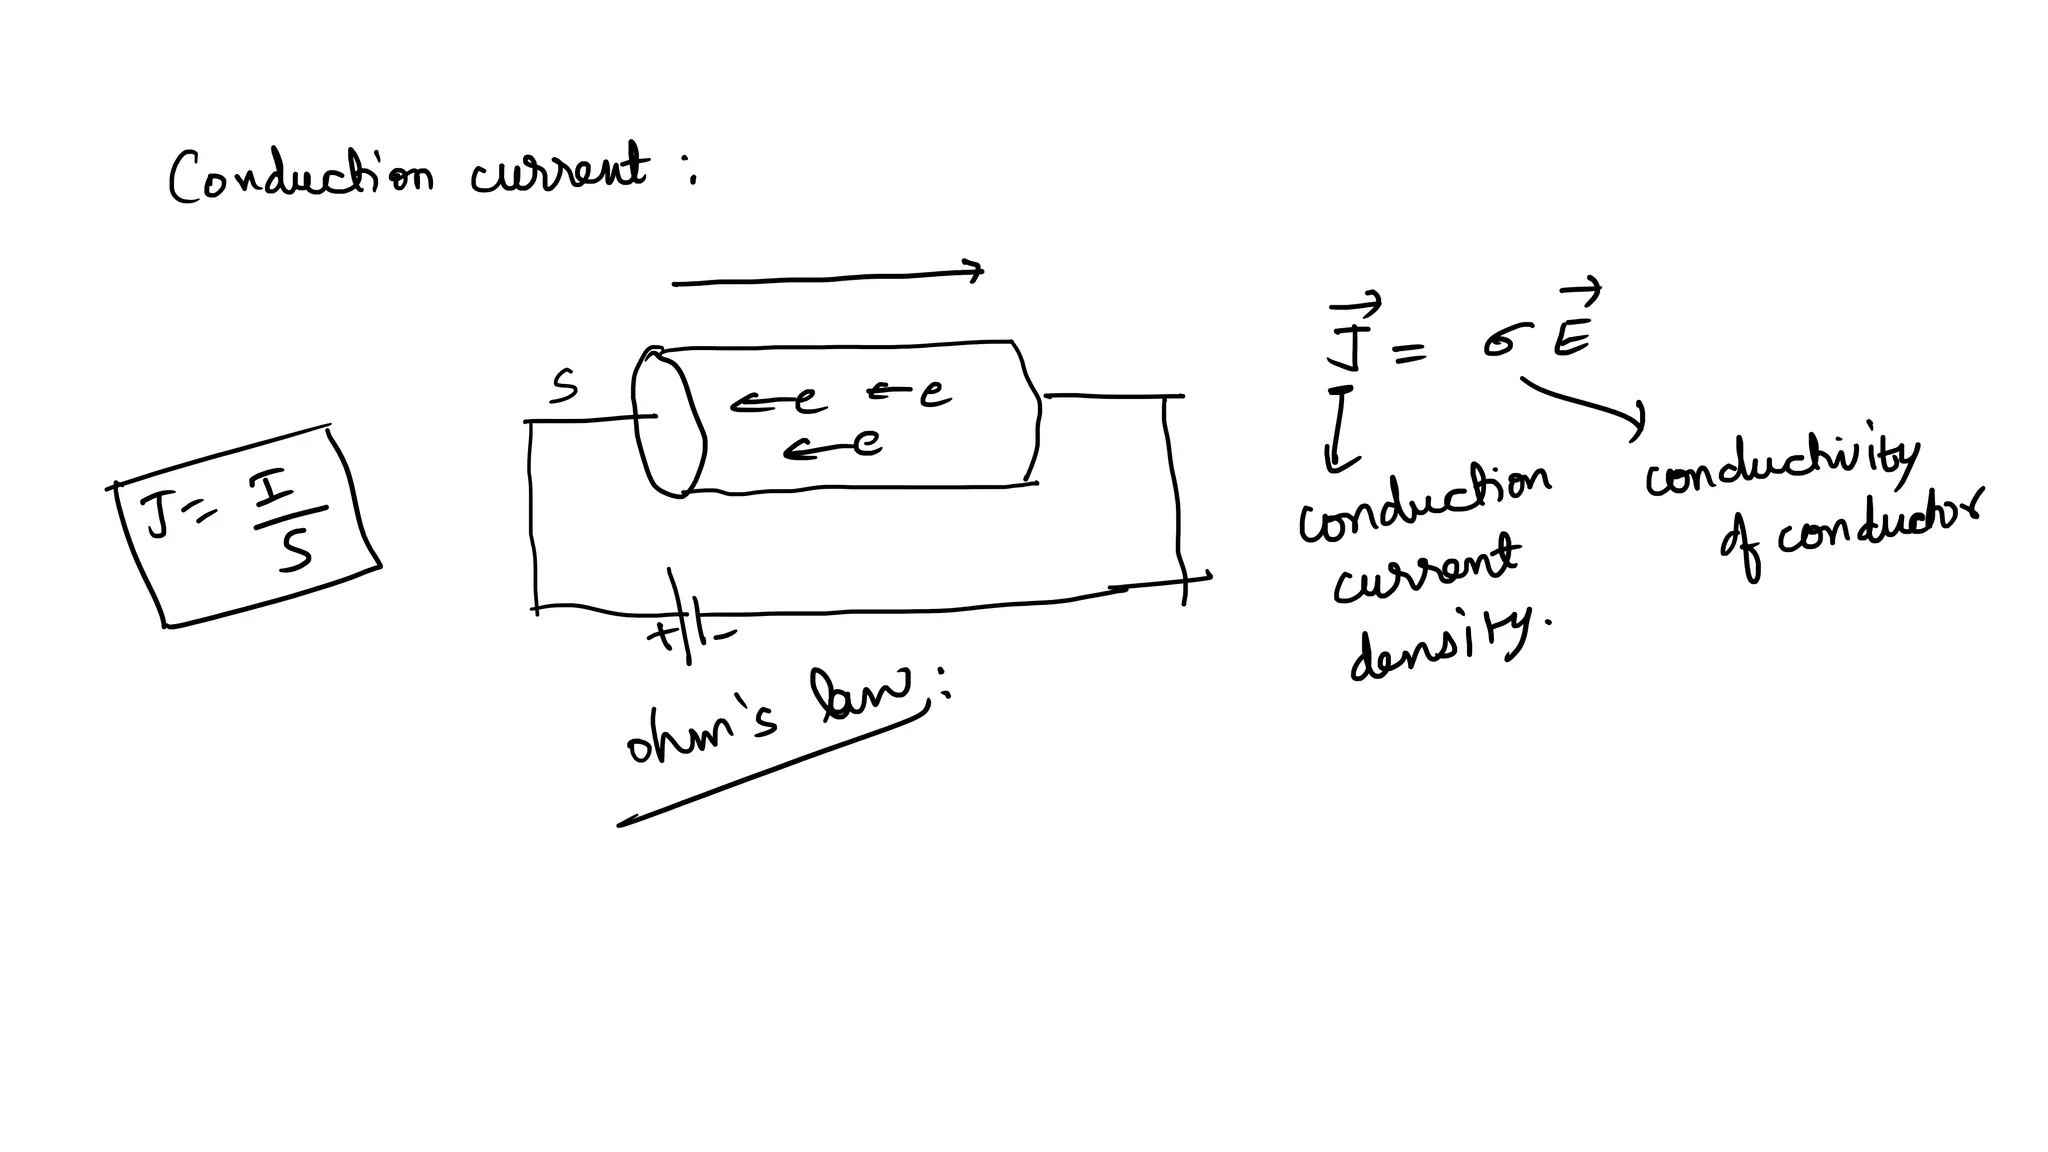 Conduction current :
S
← e ← e
← e
J = I/S
+ -
ohm's law :
J⃗ = σ E⃗
conduction
current
density.
conductivity
of conductor